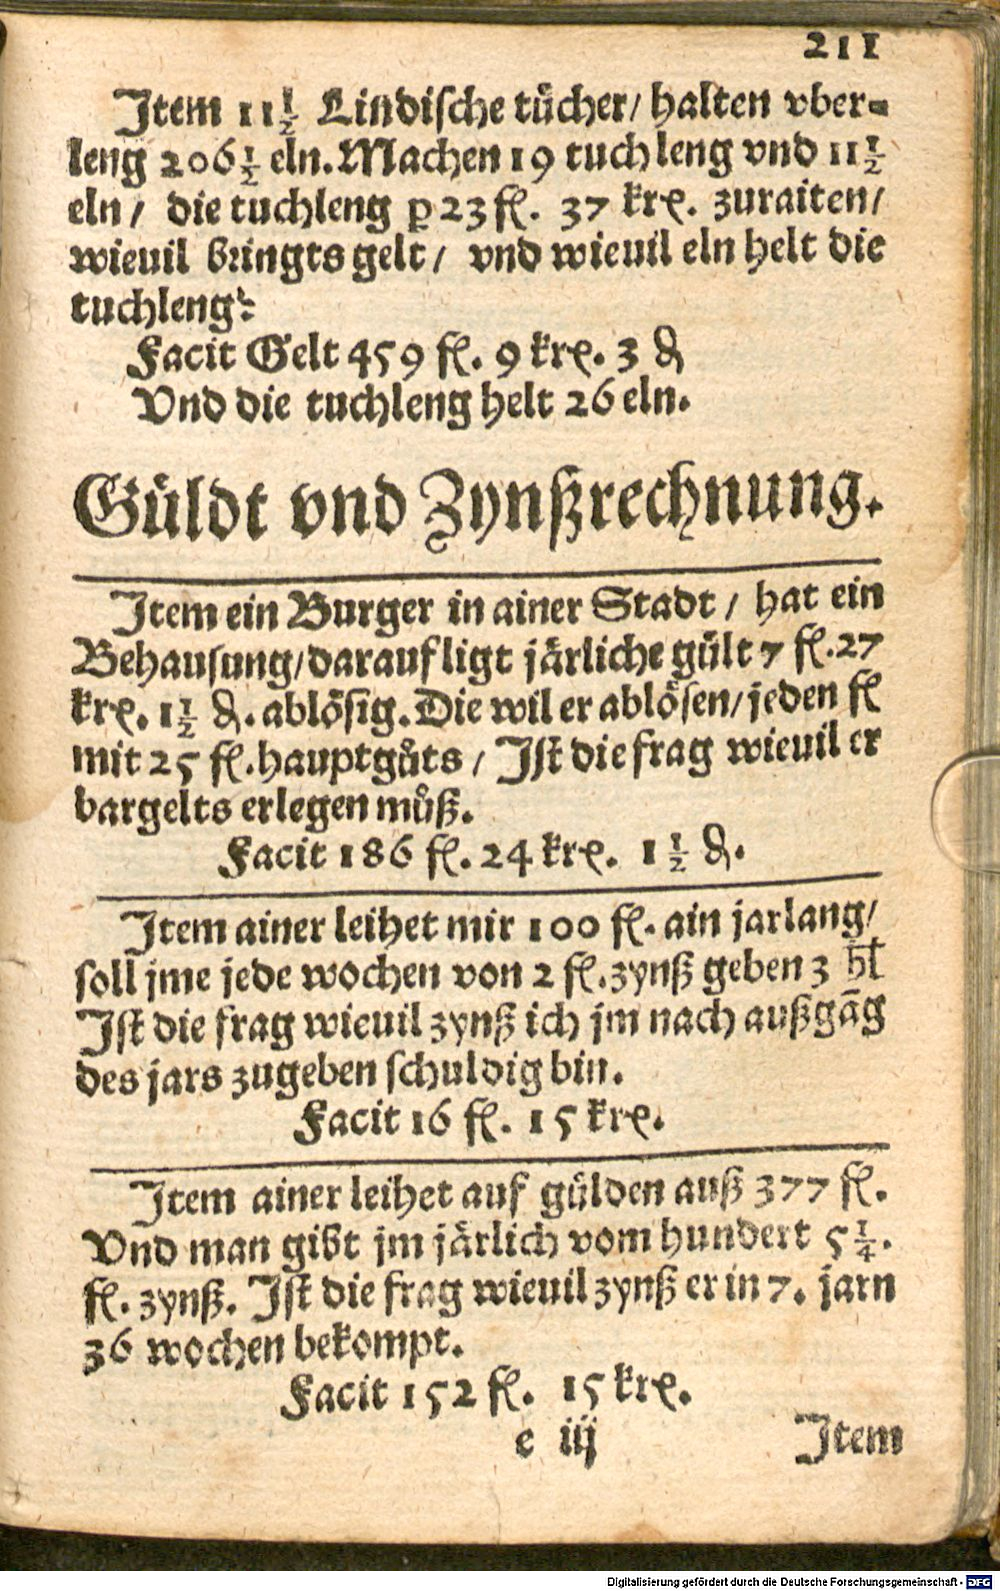 211
Item 11 1/2 Lindische tůcher/ halten vber-
leng 206 1/2 eln. Machen 19 tuchleng vnd 11 1/2
eln/ die tuchleng ꝑ 23 fl. 37 krꝭ. zuraiten/
wieuil bringts gelt/ vnd wieuil eln helt die
tuchleng?
Facit Gelt 459 fl. 9 krꝭ. 3 ₰
Vnd die tuchleng helt 26 eln.
Gůldt vnd Zynßrechnung.
Item ein Burger in ainer Stadt/ hat ein
Behausung/ darauf ligt jårliche gůlt 7 fl. 27
krꝭ. 1 1/2 ₰. ablôsig. Die wil er ablôsen/ jeden fl
mit 25 fl. hauptgůts/ Ist die frag wieuil er
bargelts erlegen můß.
Facit 186 fl. 24 krꝭ. 1 1/2 ₰.
Item ainer leihet mir 100 fl. ain jarlang/
soll jme jede wochen von 2 fl. zynß geben 3 hł
Ist die frag wieuil zynß ich jm nach außgãg
des jars zugeben schuldig bin.
Facit 16 fl. 15 krꝭ.
Item ainer leihet auf gůlden auß 377 fl.
Vnd man gibt jm jårlich vom hundert 5 1/4.
fl. zynß. Ist die frag wieuil zynß er in 7. jarn
36 wochen bekompt.
Facit 152 fl. 15 krꝭ.
e iij Item
Digitalisierung gefördert durch die Deutsche Forschungsgemeinschaft - DFG